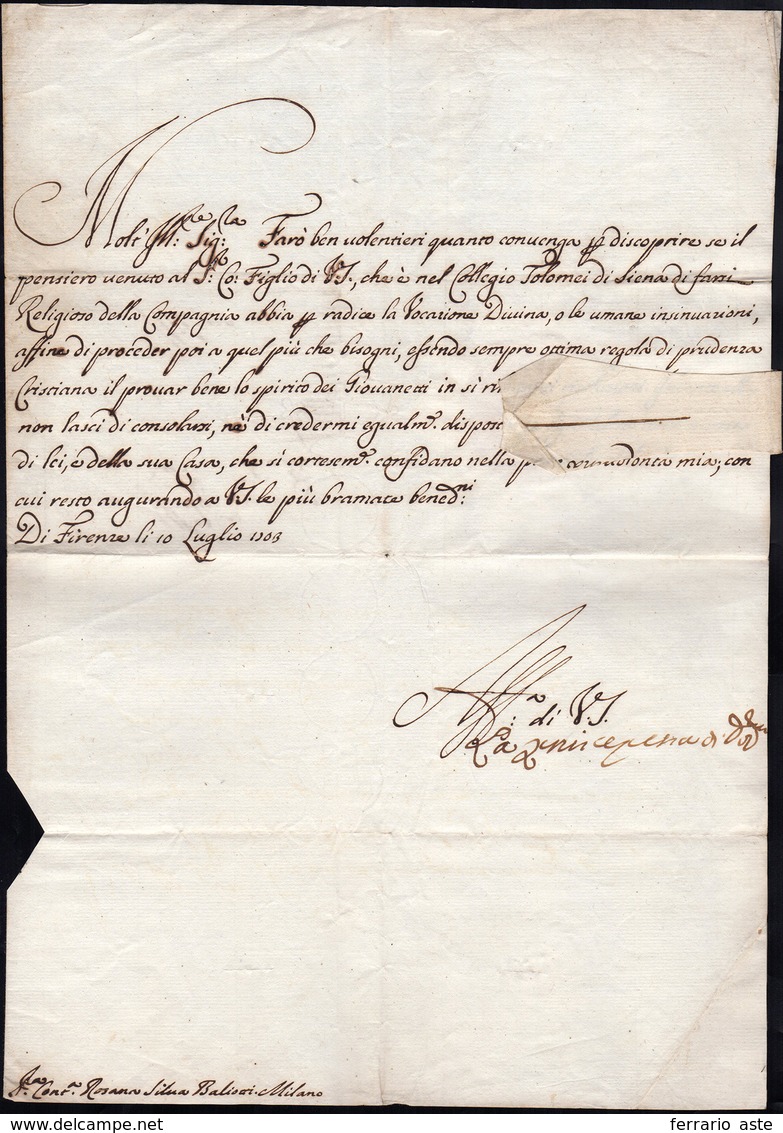 Molt' Ill:re Sig:ra Farò ben volentieri quanto convenga p discoprire se il
pensiero venuto al S:r Co: Figlio di V.S., che è nel Collegio Tolomei di Siena di farsi
Religioso della Compagnia abbia p radice la Vocazione Divina, o le umane insinuazioni,
affine di proceder poi a quel più che bisogni, essendo sempre ottima regola di prudenza
Cristiana il provar bene lo spirito dei Giovanetti in sì
non lasci di consolarsi, nè di credermi egualm.e
di lei, e della sua Casa, che sì cortesem.e confidano nella mia; con
cui resto augurando a V.S. le più bramate bened:ni
Di Firenze li 10 Luglio 1703
Aff:a di V.S.
La di
S:ra Cont.a Rosana Silva Milano
ferrario aste